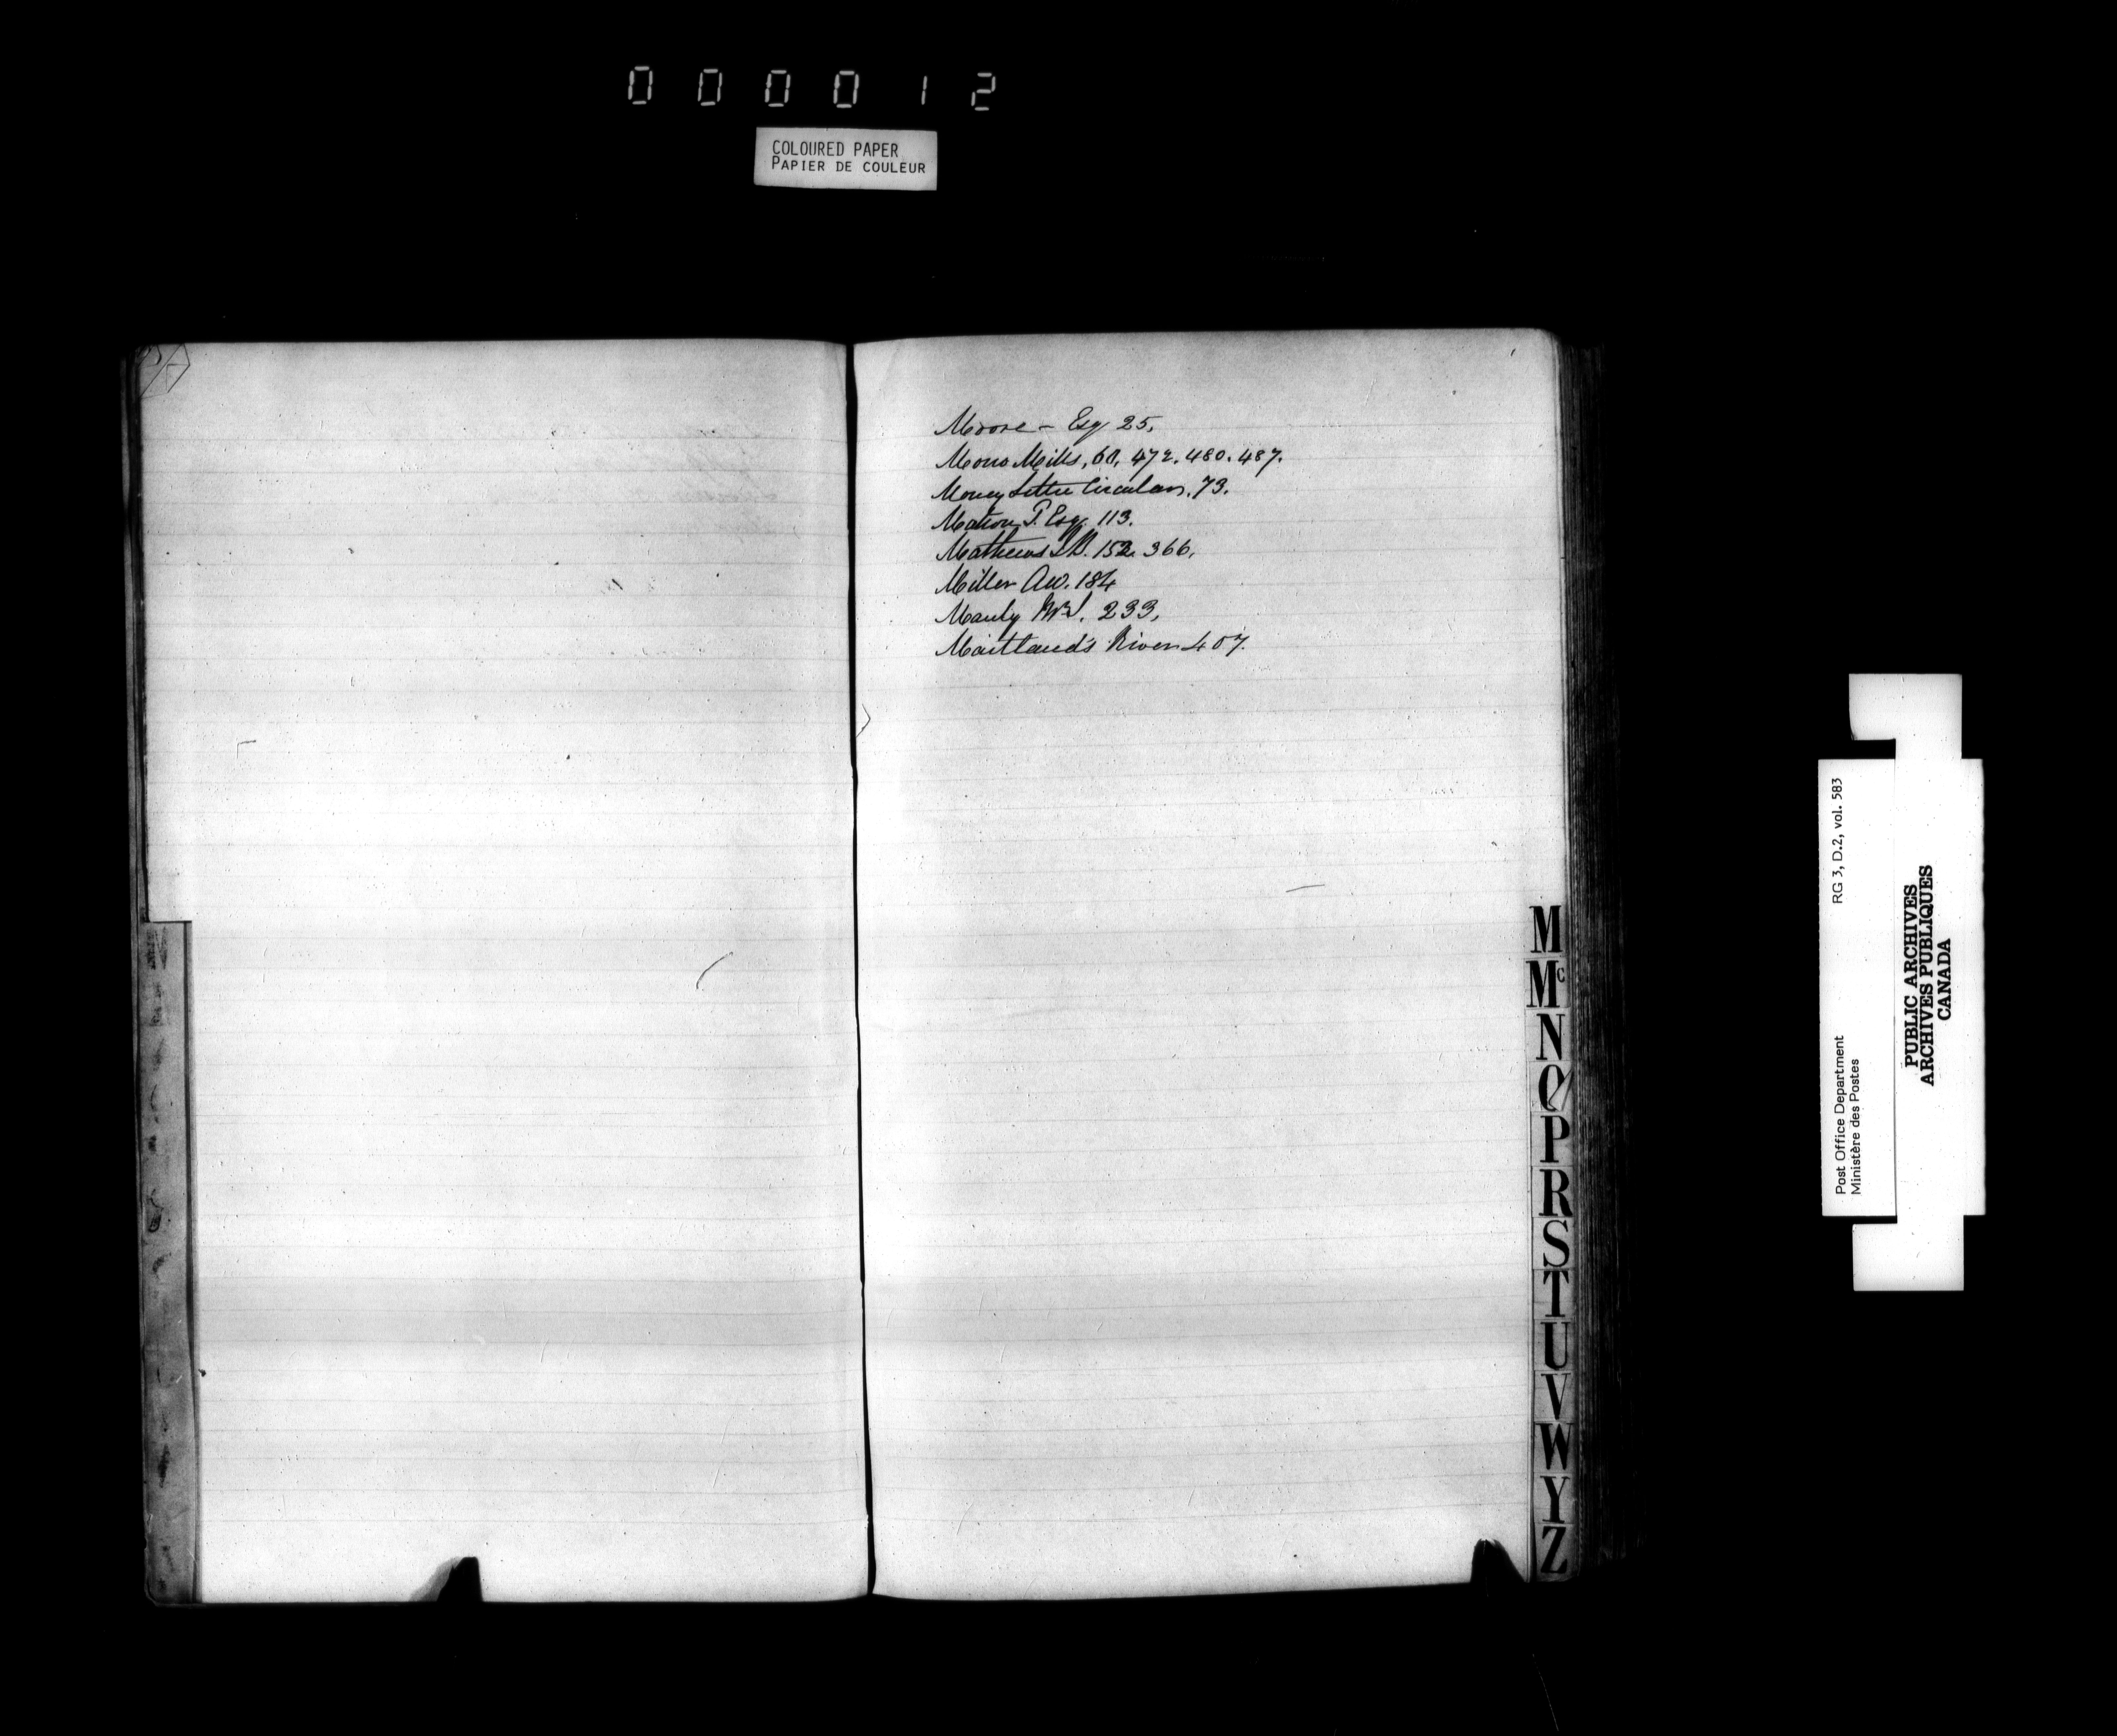 000012
COLOURED PAPER
PAPIER DE COULEUR
Moore - Esq 25.
Mono Mills, 60, 472. 480. 487.
Money Letter Circulars. 73.
Mation T. Esq. 113.
Mathews 152. 366.
Miller AW. 184
Manly 233.
Maitland's River 407.
M
Mc
N
O
P
R
S
T
U
V
W
Y
Z
Post Office Department RG 3, D.2, vol. 583
Ministère des Postes
PUBLIC ARCHIVES
ARCHIVES PUBLIQUES
CANADA